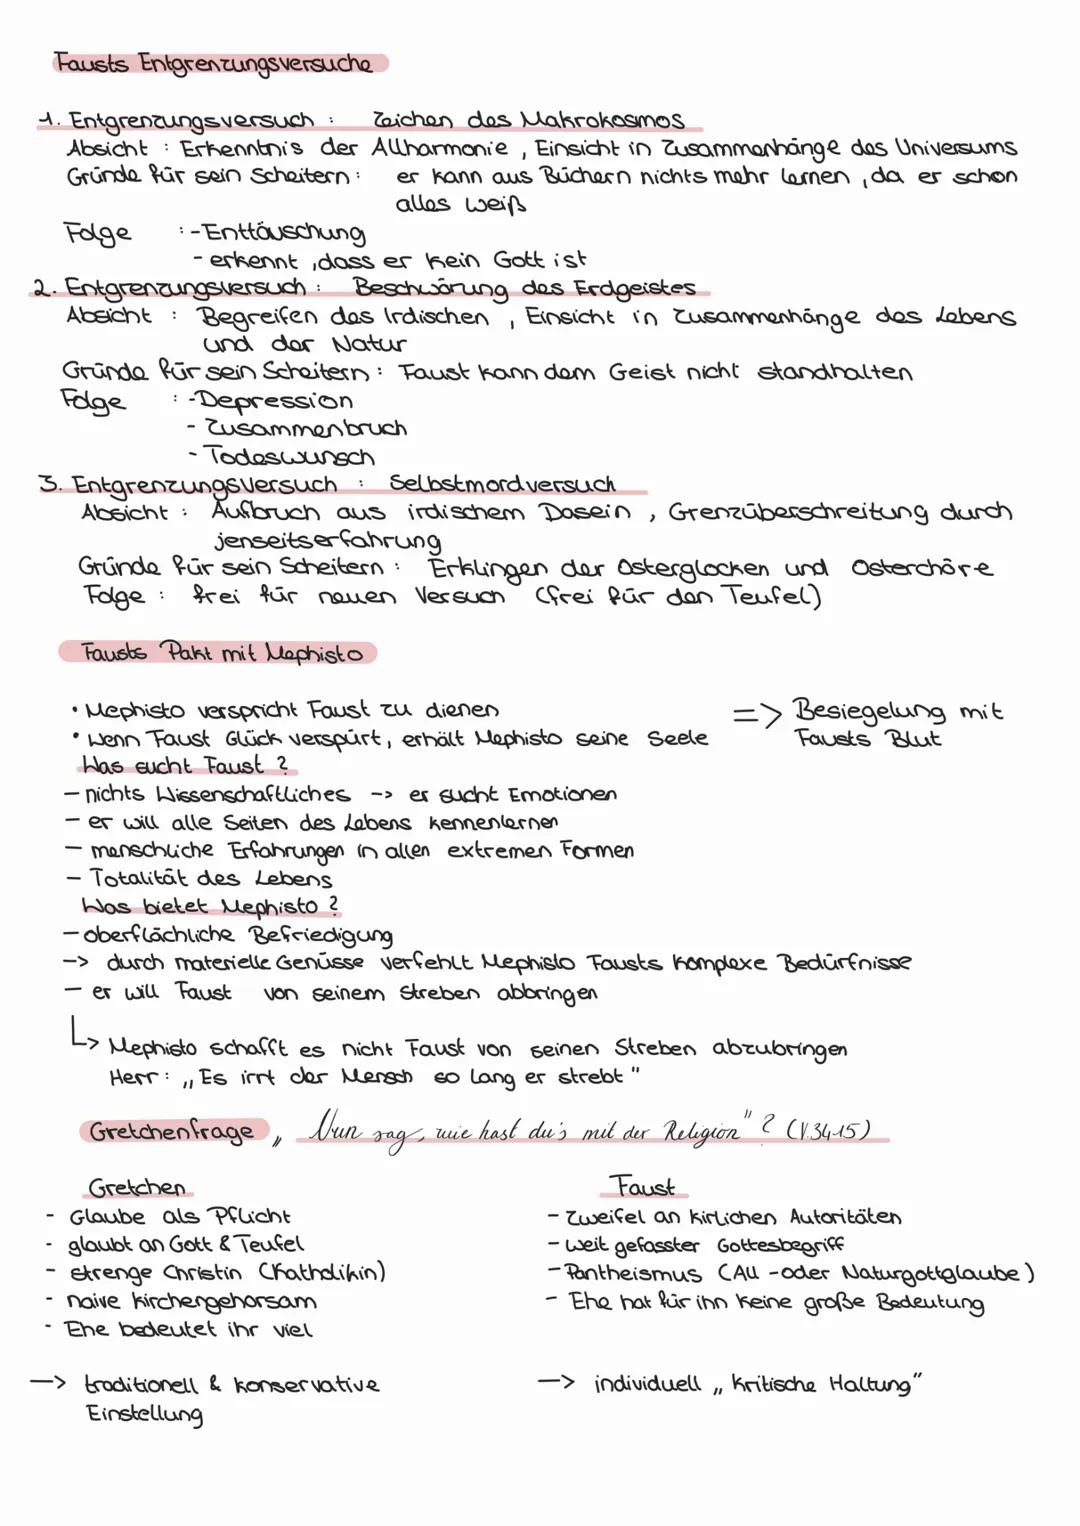 Fausts Entgrenzungsversuche
1. Entgrenzungsversuch : Zeichen des Makrokosmos
Absicht : Erkenntnis der Allharmonie , Einsicht in Zusammenhänge des Universums
Gründe für sein Scheitern : er kann aus Büchern nichts mehr lernen , da er schon
alles weiß
Folge : - Enttäuschung
- erkennt , dass er kein Gott ist
2. Entgrenzungsversuch : Beschwörung des Erdgeistes
Absicht : Begreifen des Irdischen , Einsicht in Zusammenhänge des Lebens
und der Natur
Gründe für sein Scheitern : Faust kann dem Geist nicht standhalten
Folge : - Depression
- Zusammenbruch
- Todeswunsch
3. Entgrenzungsversuch : Selbstmordversuch
Absicht : Aufbruch aus irdischem Dasein , Grenzüberschreitung durch
jenseitserfahrung
Gründe für sein Scheitern : Erklingen der Osterglocken und Osterchöre
Folge : frei für neuen Versuch (frei für den Teufel)
Fausts Pakt mit Mephisto
• Mephisto verspricht Faust zu dienen => Besiegelung mit
• wenn Faust Glück verspürt, erhält Mephisto seine Seele Fausts Blut
Was sucht Faust ?
- nichts Wissenschaftliches -> er sucht Emotionen
- er will alle Seiten des Lebens kennenlernen
- menschliche Erfahrungen in allen extremen Formen
- Totalität des Lebens
Was bietet Mephisto ?
- oberflächliche Befriedigung
-> durch materielle Genüsse verfehlt Mephisto Fausts komplexe Bedürfnisse
- er will Faust von seinem Streben abbringen
↳ Mephisto schafft es nicht Faust von seinen Streben abzubringen
Herr : „ Es irrt der Mensch so lang er strebt "
Gretchenfrage „ Nun sag, wie hast du's mit der Religion" ? (V.3415)
Gretchen
- Glaube als Pflicht
- glaubt an Gott & Teufel
- strenge Christin (Katholikin)
- naive Kirchengehorsam
- Ehe bedeutet ihr viel
-> traditionell & konservative
Einstellung
Faust
- Zweifel an kirlichen Autoritäten
- weit gefasster Gottesbegriff
- Pantheismus (All -oder Naturgottglaube)
- Ehe hat für ihn keine große Bedeutung
-> individuell „ kritische Haltung"